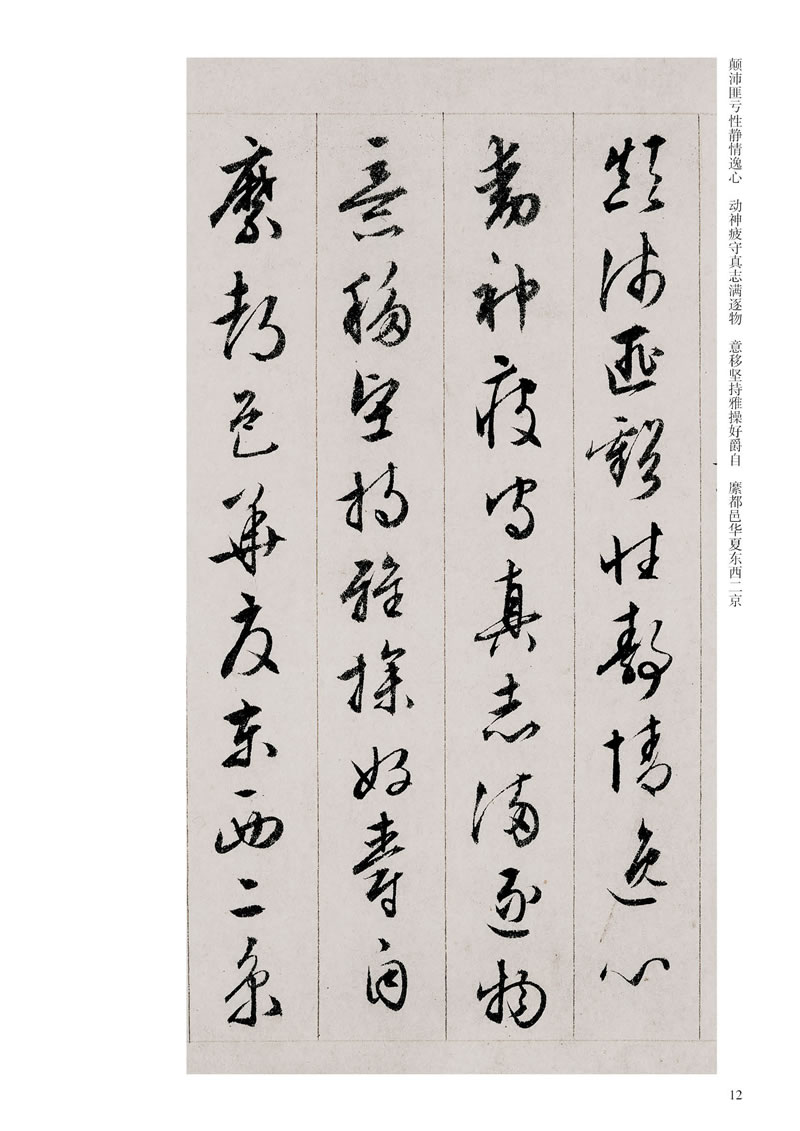 颠沛匪亏性静情逸心 动神疲守真志满逐物 意移坚持雅操好爵自 縻都邑华夏东西二京
顛沛匪虧性靜情逸心
動神疲守真志滿逐物
意移堅持雅操好爵自
縻都邑華夏東西二京
12